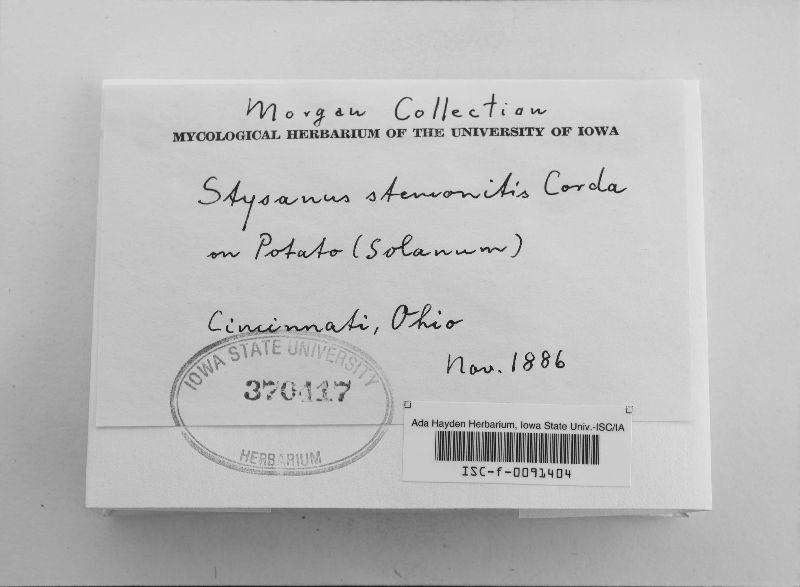 Morgan Collection
MYCOLOGICAL HERBARIUM OF THE UNIVERSITY OF IOWA
Stysanus stemonitis Corda
on Potato (Solanum)
Cincinnati, Ohio
Nov. 1886
IOWA STATE UNIVERSITY
370417
HERBARIUM
Ada Hayden Herbarium, Iowa State Univ.-ISC/IA
ISC-f-0091404